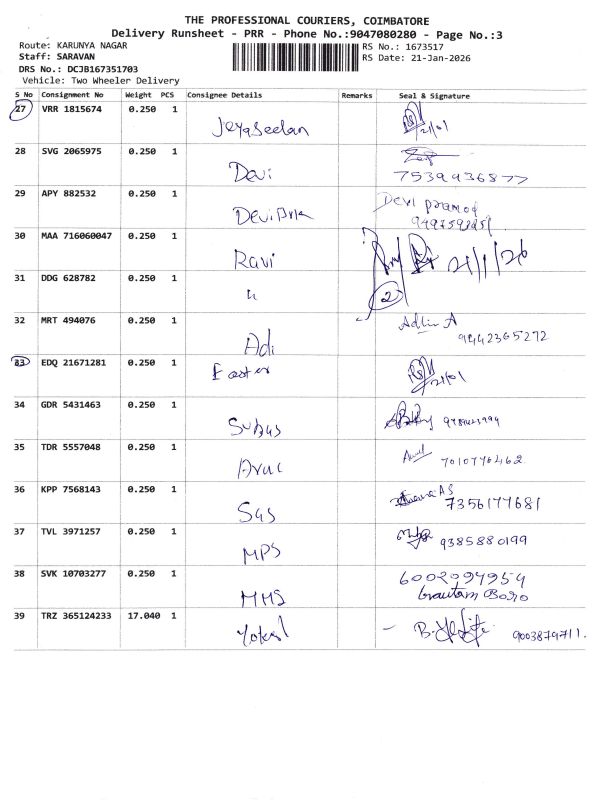 THE PROFESSIONAL COURIERS, COIMBATORE
Delivery Runsheet - PRR - Phone No.:9047080280 - Page No.:3
Route: KARUNYA NAGAR RS No.: 1673517
Staff: SARAVAN RS Date: 21-Jan-2026
DRS No.: DCJB167351703
Vehicle: Two Wheeler Delivery
S No Consignment No Weight PCS Consignee Details Remarks Seal & Signature
27 VRR 1815674 0.250 1 Jeyaseelan 21/01
28 SVG 2065975 0.250 1 Devi
7539936877
29 APY 882532 0.250 1 Devi Pramod
30 MAA 716060047 0.250 1 Ravi 21/1/26
31 DDG 628782 0.250 1 2
32 MRT 494076 0.250 1 Adi 9442365272
33 EDQ 21671281 0.250 1 21/01
34 GDR 5431463 0.250 1
35 TDR 5557048 0.250 1 7010770462
36 KPP 7568143 0.250 1 Sas 7356177681
37 TVL 3971257 0.250 1 MPS 9385880199
38 SVK 10703277 0.250 1 MMS 6002097959
Gautam Boro
39 TRZ 365124233 17.040 1 9003879711.